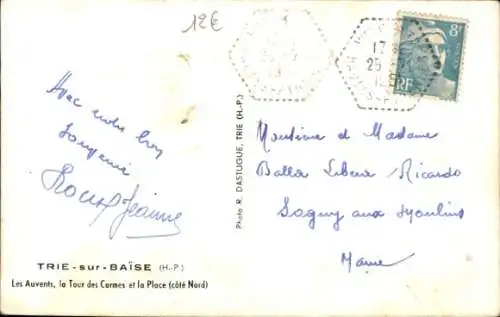 12€
17
25
8F
RF
Avec notre bon
Souvenir
Roux Jeanne
Photo R. DASTUGUE, TRIE (H.-P.)
Monsieur et Madame
Balla Libeux Ricardo
Sagny aux Moulins
Marne
TRIE-sur-BAÏSE (H.-P.)
Les Auvents, la Tour des Carmes et la Place (côté Nord)